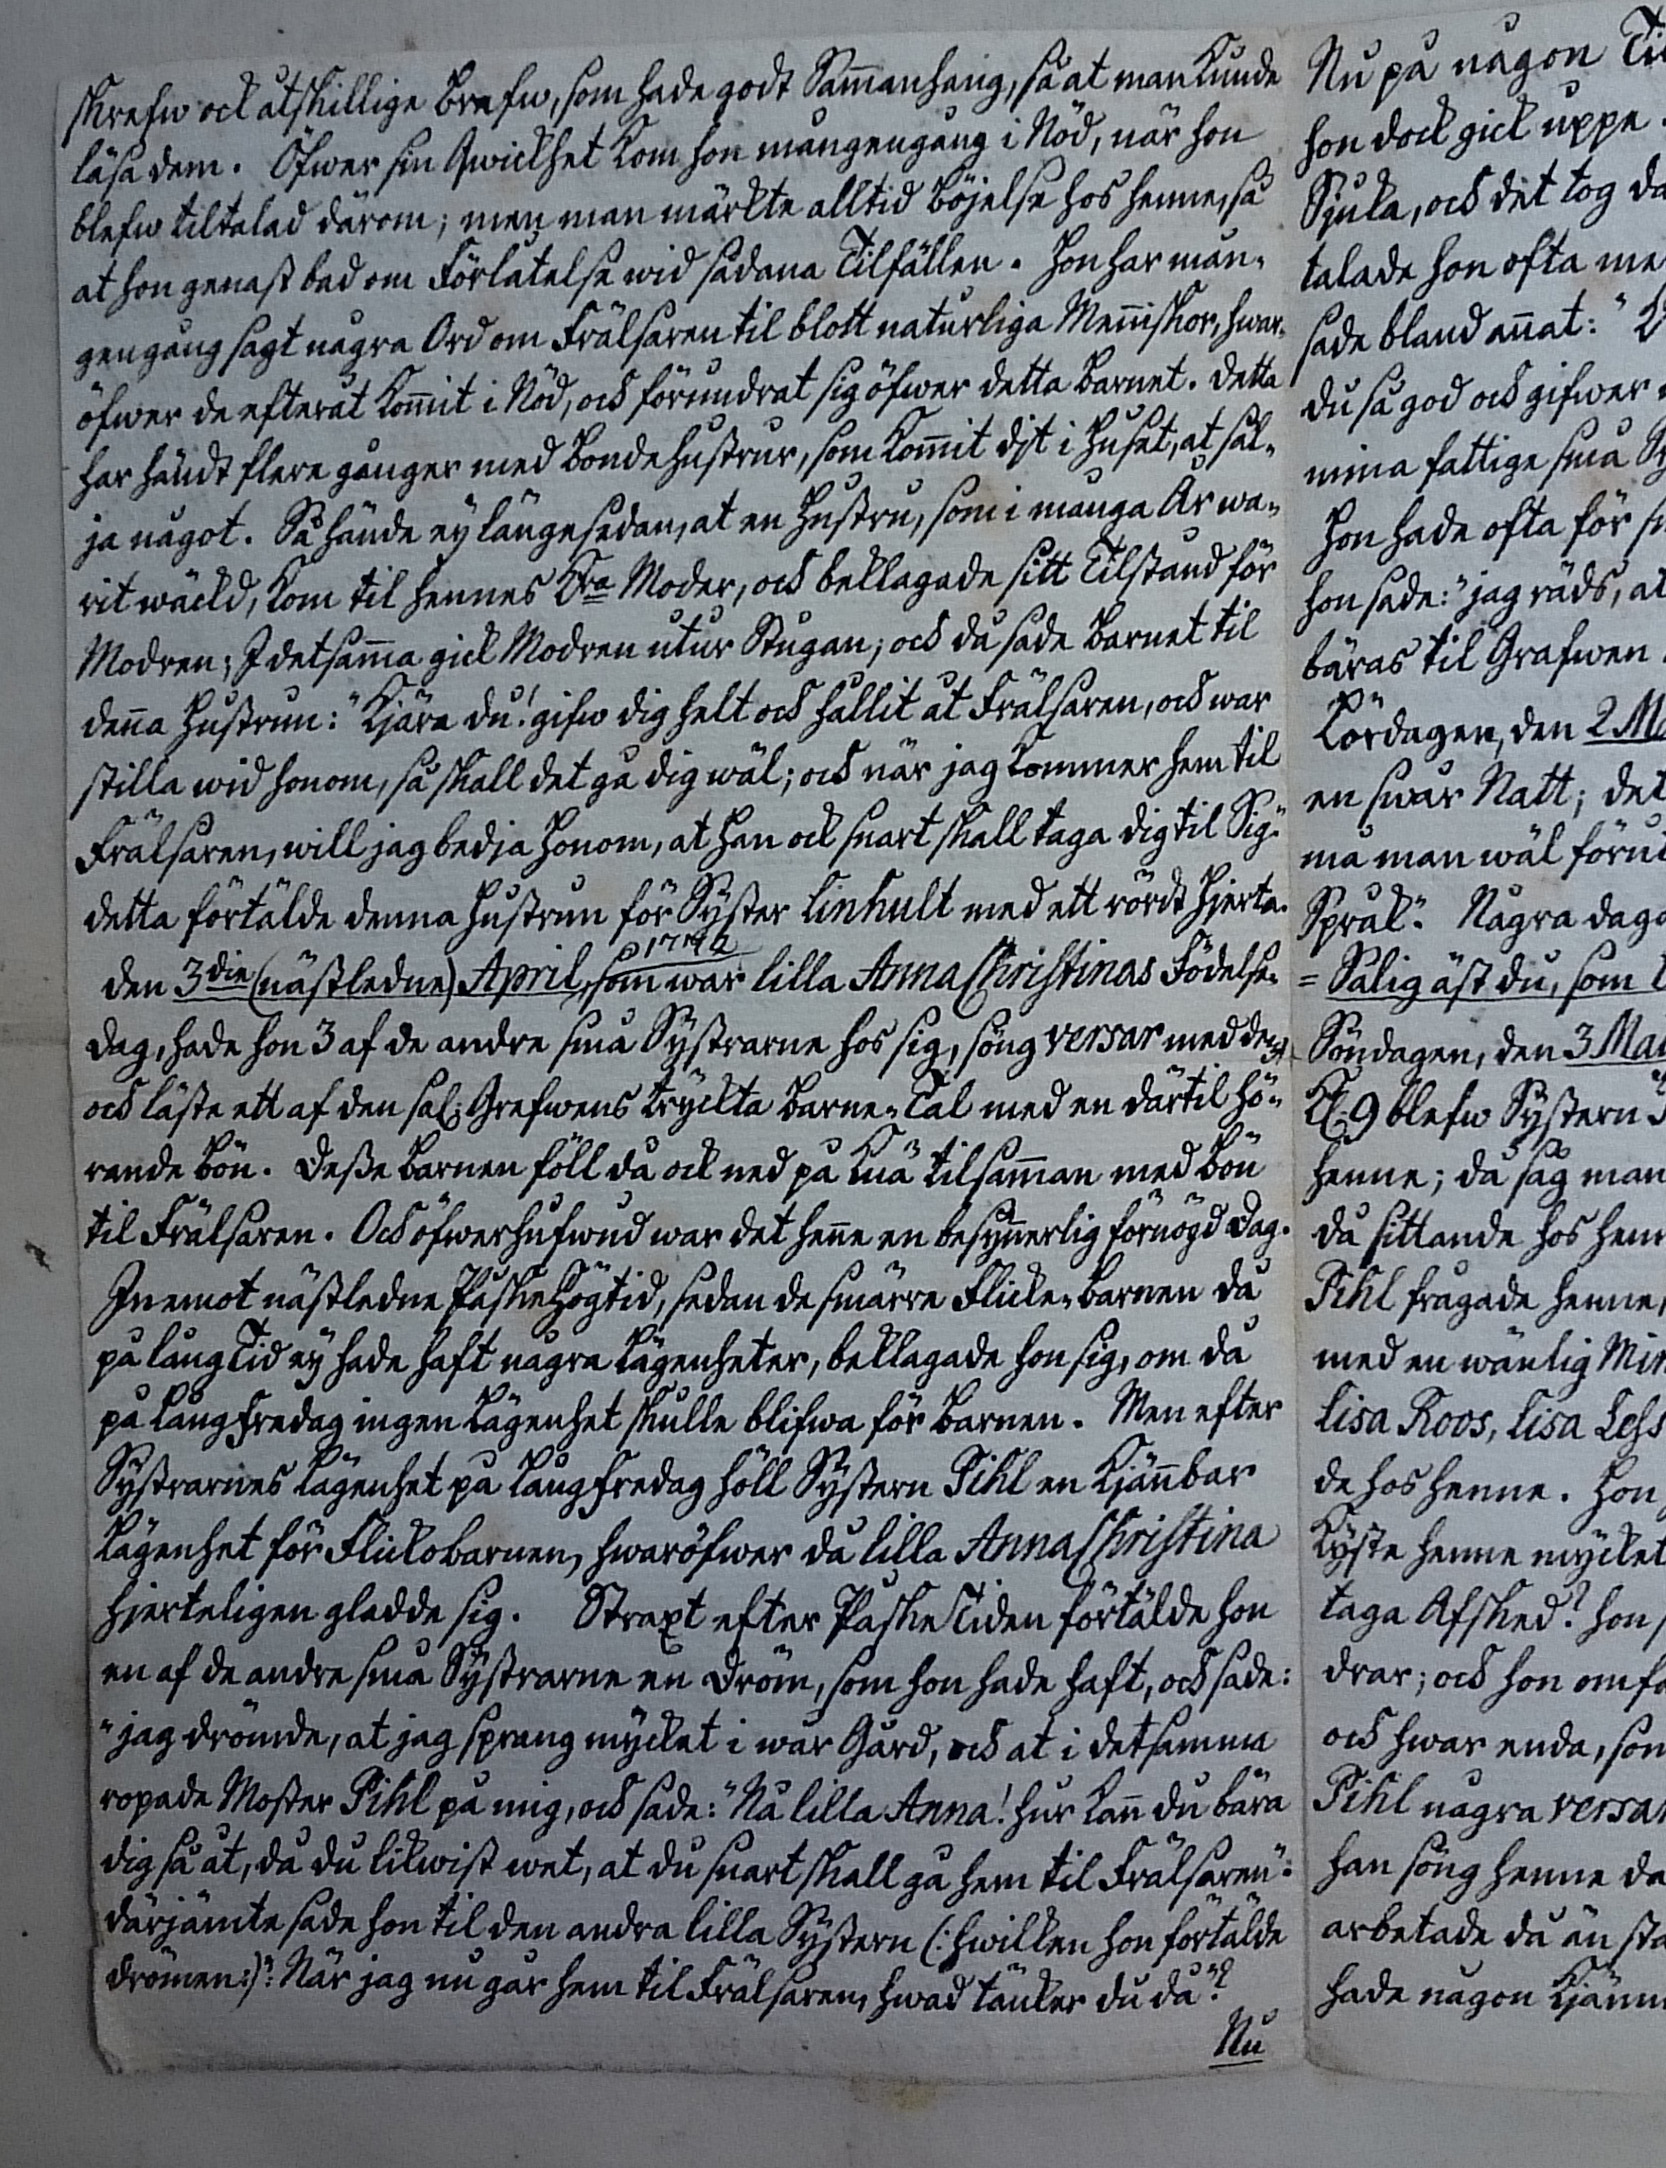 skrefw ock åtskillige Brefw, som hade godt Sam̄anhang, så at man kunde
läsa dem. Öfwer sin Qwickhet kom hon mångengång i Nöd, när hon
blefw tiltalad därom; men man märkte alltid Böjelse hos henne, så
at hon genast bad om Förlåtelse wid sådana Tilfällen. Hon har mån-
gengång sagt några Ord om Frälsaren til blott naturliga Men̄iskor, hwar-
öfwer de efteråt kom̄it i Nöd, och förundrat sig öfwer detta Barnet. Detta
har händt flere gånger med Bondehustrur, som kom̄it dit i Huset, at säl-
ja något. Så hände ey länge sedan, at en Hustru, som i många År wa-
rit wäckd, kom til hennes K:ra Moder, och beklagade sitt Tilstånd för
Modren; I detsam̄a gick Modren utur Stugan; och då sade Barnet til
den̄a Hustrun: "Kjära du! gifw dig helt och hållit åt Frälsaren, och war
stilla wid honom, så skall det gå dig wäl; och när jag kommer hem til
Frälsaren, will jag bedja Honom, at Han ock snart skall taga dig til Sig."
Detta förtälde denna Hustrun för Syster Linhult med ett rördt Hjerta.
1772
Den 3die (nästledne) April, som war lilla Anna Christinas Födelse-
dag, hade hon 3 af de andre små Systrarne hos sig, söng versar med dem,
och läste ett af den sal: Grefwens tryckta Barne-Tal med en därtil hö-
rande Bön. Desse Barnen föll då ock ned på Knä tilsam̄an med Bön
til Frälsaren. Och öfwerhufwud war det hen̄e en besyn̄erlig förnögd Dag.
Inemot nästledne Påske Högtid, sedan de smärre Flicke-Barnen då
på lång Tid ey hade haft några Lägenheter, beklagade hon sig, om då
på Långfredag ingen Lägenhet skulle blifwa för Barnen. Men efter
Systrarnes Lägenhet på Långfredag höll Systern Pihl en Kjän̄bar
Lägenhet för Flickobarnen, hwaröfwer då lilla Anna Christina
hjerteligen gladde sig. Straxt efter Påske Tiden förtälde hon
en af de andre små Systrarne en Dröm, som hon hade haft, och sade:
"jag drömde, at jag sprang mycket i wår Gård, och at i detsamma
ropade Moster Pihl på mig, och sade: "Nå lilla Anna! hur kan̄ du bära
dig så åt, då du likwist wet, at du snart skall gå hem til Frälsaren".
därjämte sade hon til den andra lilla Systern (: hwilken hon förtälde
drömen:)": När jag nu går hem til Frälsaren, hwad tänker du då"?
Nu
Nu på någon Ti
hon dock gick uppe.
Sjuka, och det tog da
talade hon ofta me
sade bland an̄at: "
du så god och gifwer
mina fattige små Sy
Hon hade ofta för
hon sade: "jag räds, at
bäras til Grafwen
Lördagen, den 2 Ma
en swår Natt; det
må man wäl föru
Språk". Några daga
= Salig äst du, som
Söndagen, den 3 Mai
Kl: 9 blefw Systern
henne; då såg man
då sittande hos hen
Pihl frågade henne,
med en wänlig Min
Lisa Roos, Lisa
de hos henne. Hon
Kyste henne mycket
taga Afsked? hon
drar; och hon omfa
och hwar enda, som
Pihl några versar
han söng henne da
arbetade då än sta
hade någon Kjän